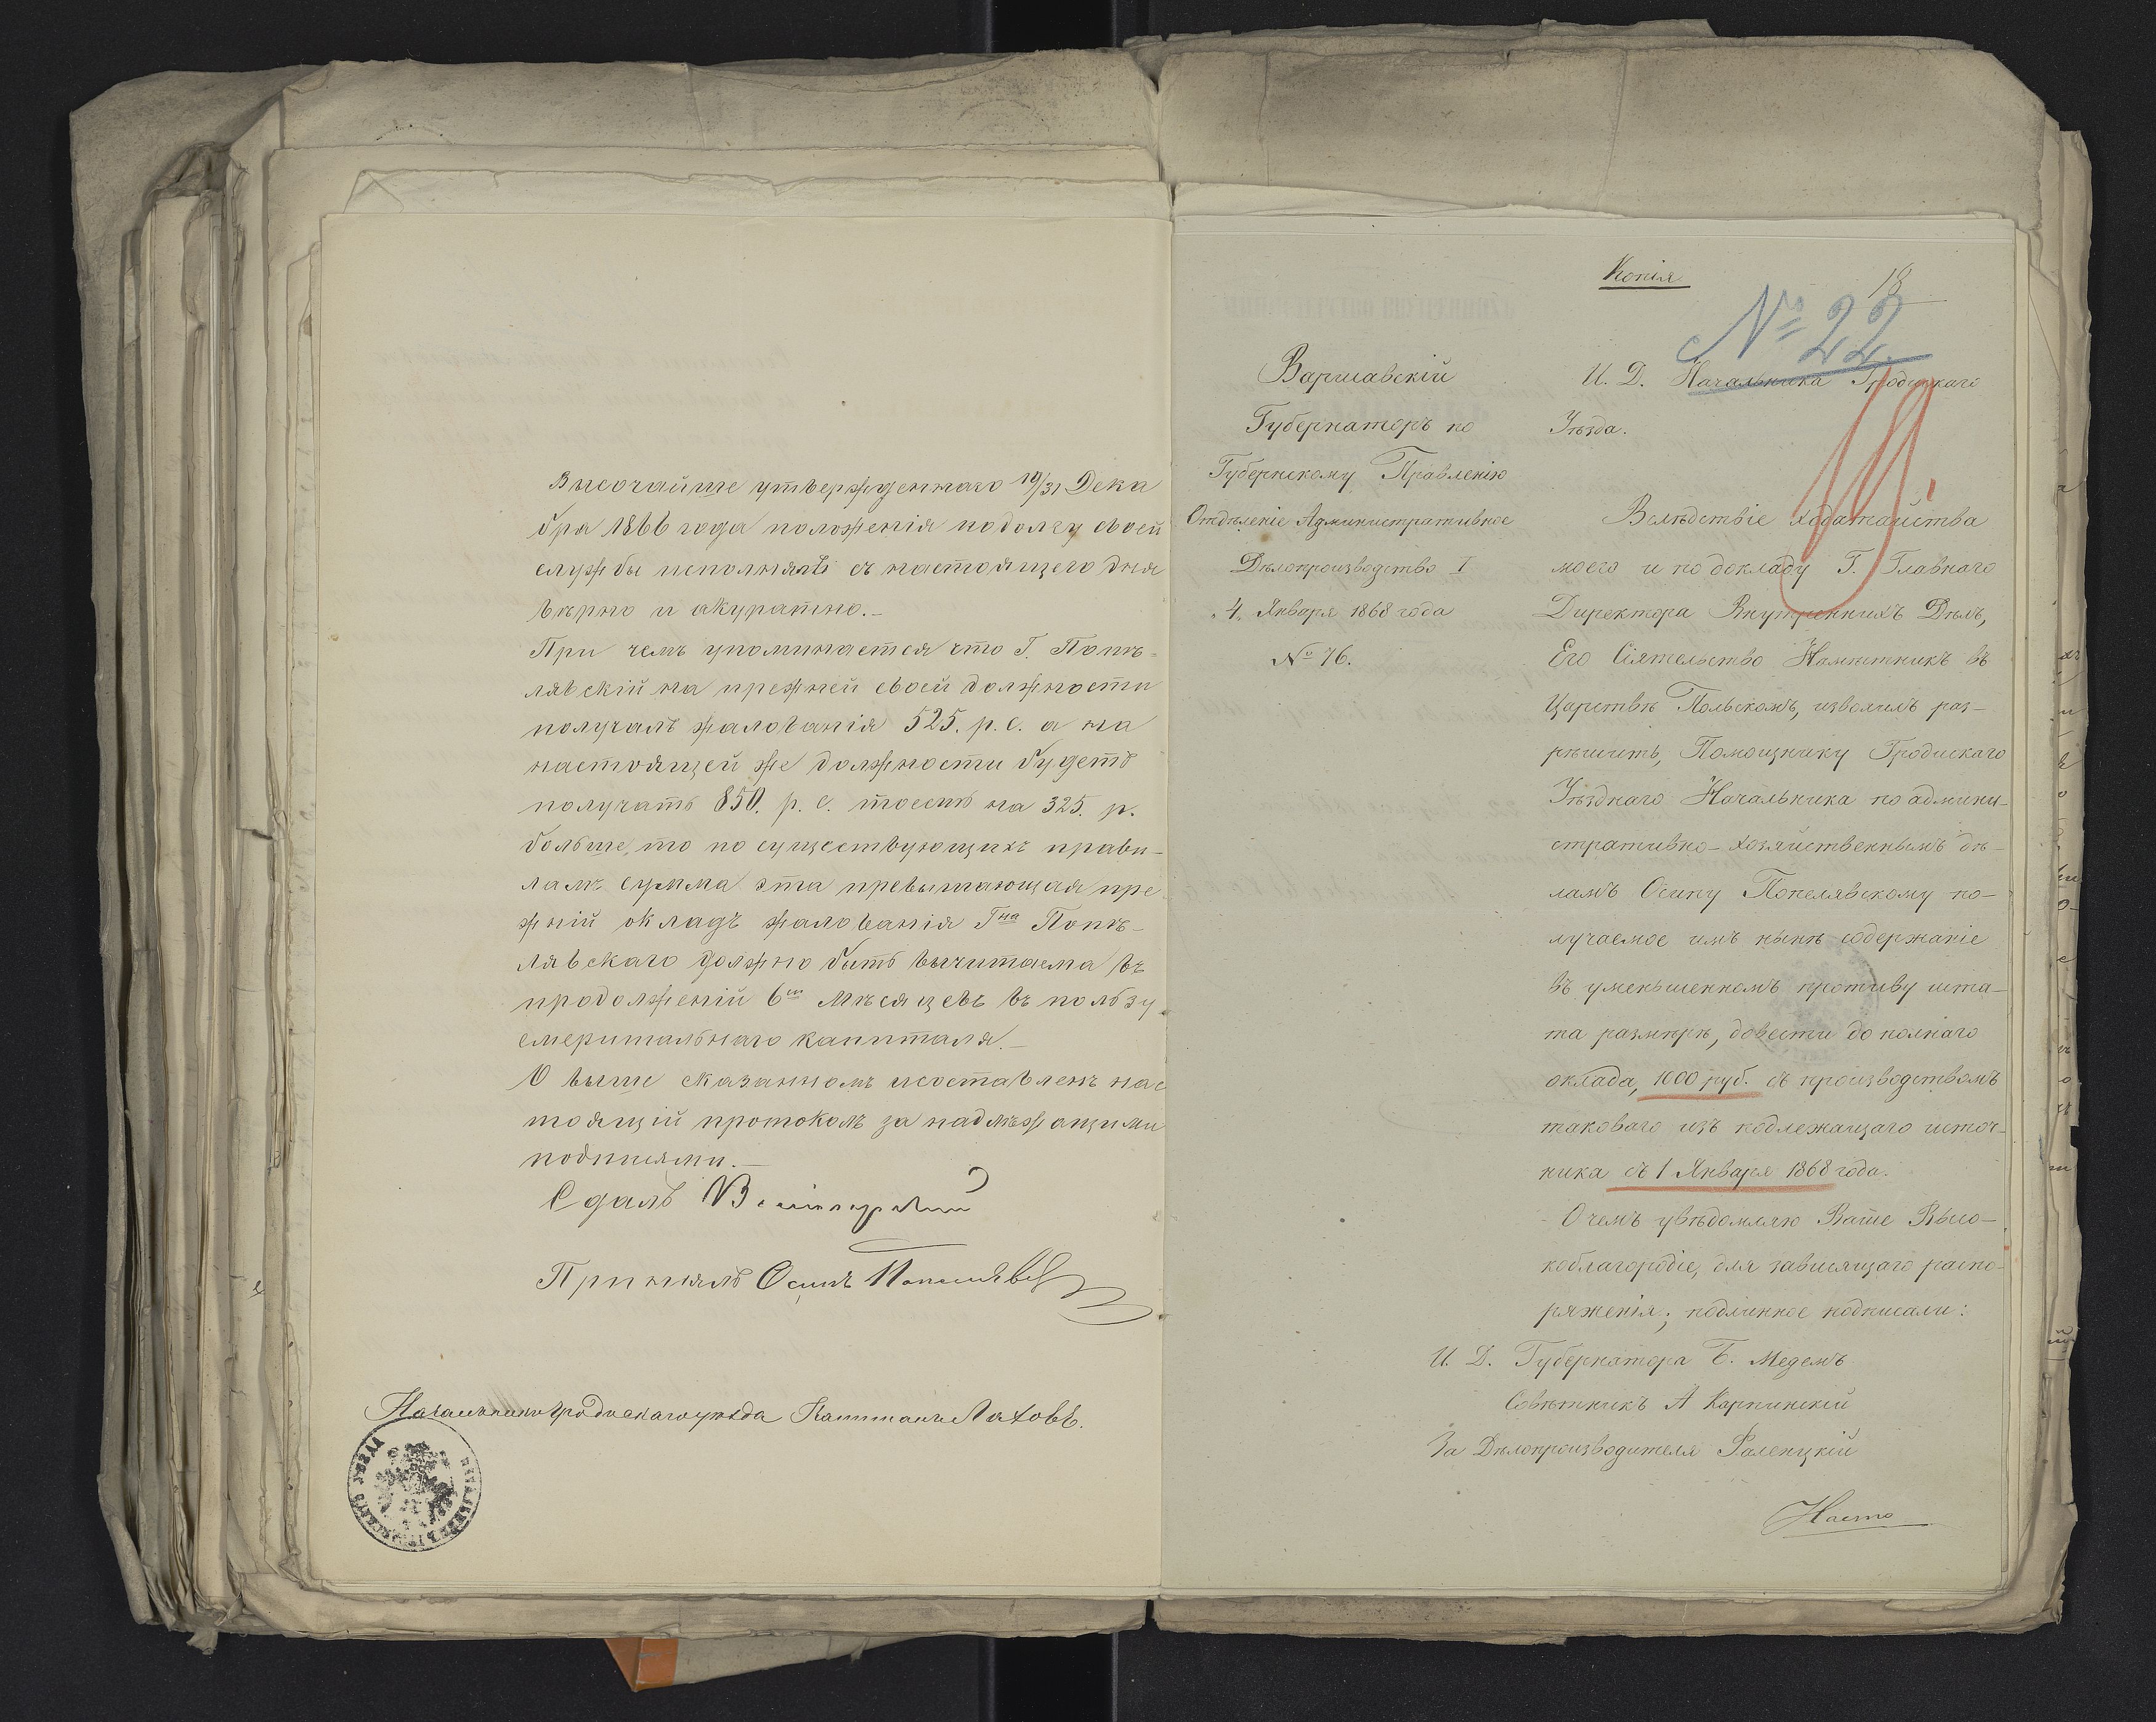 Высочайше утвержденнаго 19/31 Дека
бря 1866 года положенія по долгу своей
службы исполнять съ настоящего дня
вѣрно и акуратно.-
При чемъ упоминается что Г. Попѣ-
лявскій на прежней своей должности
получалъ жалованія 525. р. с. а на
настоящей же должности будетъ
получать 850. р. с. тоесть на 325. р.
больше, то по существующихъ прави-
ламъ сумма эта превышающая пре
жній окладъ жалованія Гна Попѣ-
лявскаго должно быть вычитаема въ
продолженій 6ти Мѣсяцевъ въ пользу
емеритальнаго капиталя.-
О выше сказанномъ и составленъ нас
тоящій протоколъ за надлѣжащими
подписями.-
Сдалъ
Принялъ Осипъ Попелявскій
Начальникъ Гродискаго уѣзда Капитанъ Лаховъ.
Копія
18
№ 22
Варшавскій
Губернаторъ по
Губернскому Правленію
Отдѣленіе Административное
Дѣлопроизводство I
„4„ Января 1868 года
№ 76.
И. Д. Начальника Гродискаго
Уѣзда.
Вслѣдствіе ходатайства
моего и по докладу Г. Главнаго
Директора Внутреннихъ Дѣлъ,
Его Сіятельство Намѣстникъ въ
Царствѣ Польскомъ, изволилъ раз-
рѣшить, Помощнику Гродискаго
Уѣзднаго Начальника по админи-
стративно-хозяйственнымъ дѣ-
ламъ Осипу Попелявскому по-
лучаемое имъ нынѣ содержаніе
въ уменьшенномъ противу шта-
та размѣрѣ, довести до полнаго
оклада, 1000 руб. съ производствомъ
таковаго изъ подлежащаго источ-
ника съ 1 Января 1868 года.
О чемъ увѣдомляю Ваше Высо-
коблагородіе, для зависящаго распо-
ряженія; подлинное подписали:
И. Д. Губернатора Б. Медемъ
Совѣтникъ А Карпинскій
За Дѣлопроизводителя Фаленцкій